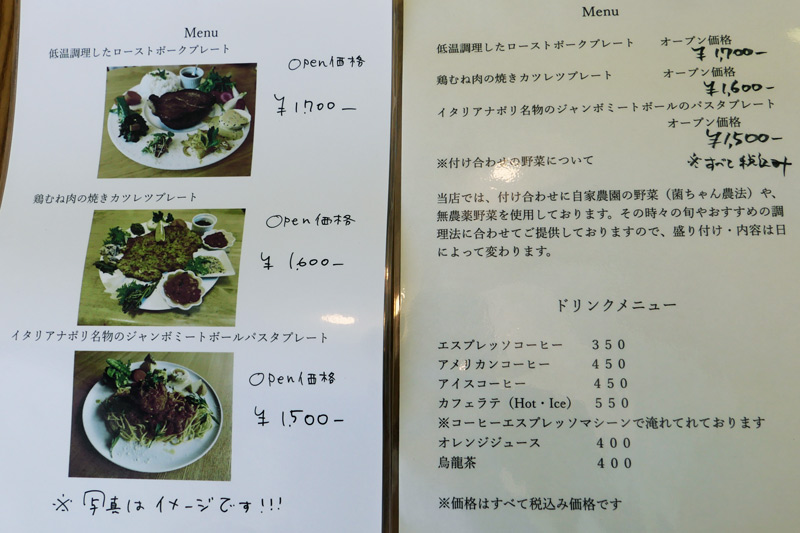 Menu
低温調理したローストポークプレート
Open価格
¥1,700ー
鶏むね肉の焼きカツレツプレート
Open価格
¥1,600ー
イタリアナポリ名物のジャンボミートボールパスタプレート
Open価格
¥1,500ー
※写真はイメージです!!!
Menu
低温調理したローストポークプレート オープン価格
¥1,700ー
鶏むね肉の焼きカツレツプレート オープン価格
¥1,600ー
イタリアナポリ名物のジャンボミートボールのパスタプレート
オープン価格
¥1,500ー
※付け合わせの野菜について ※すべて税込み
当店では、付け合わせに自家農園の野菜（菌ちゃん農法）や、
無農薬野菜を使用しております。その時々の旬やおすすめの調
理法に合わせてご提供しておりますので、盛り付け・内容は日
によって変わります。
ドリンクメニュー
エスプレッソコーヒー ３５０
アメリカンコーヒー ４５０
アイスコーヒー ４５０
カフェラテ（Hot・Ice） ５５０
※コーヒーエスプレッソマシーンで淹れてれております
オレンジジュース ４００
烏龍茶 ４００
※価格はすべて税込み価格です